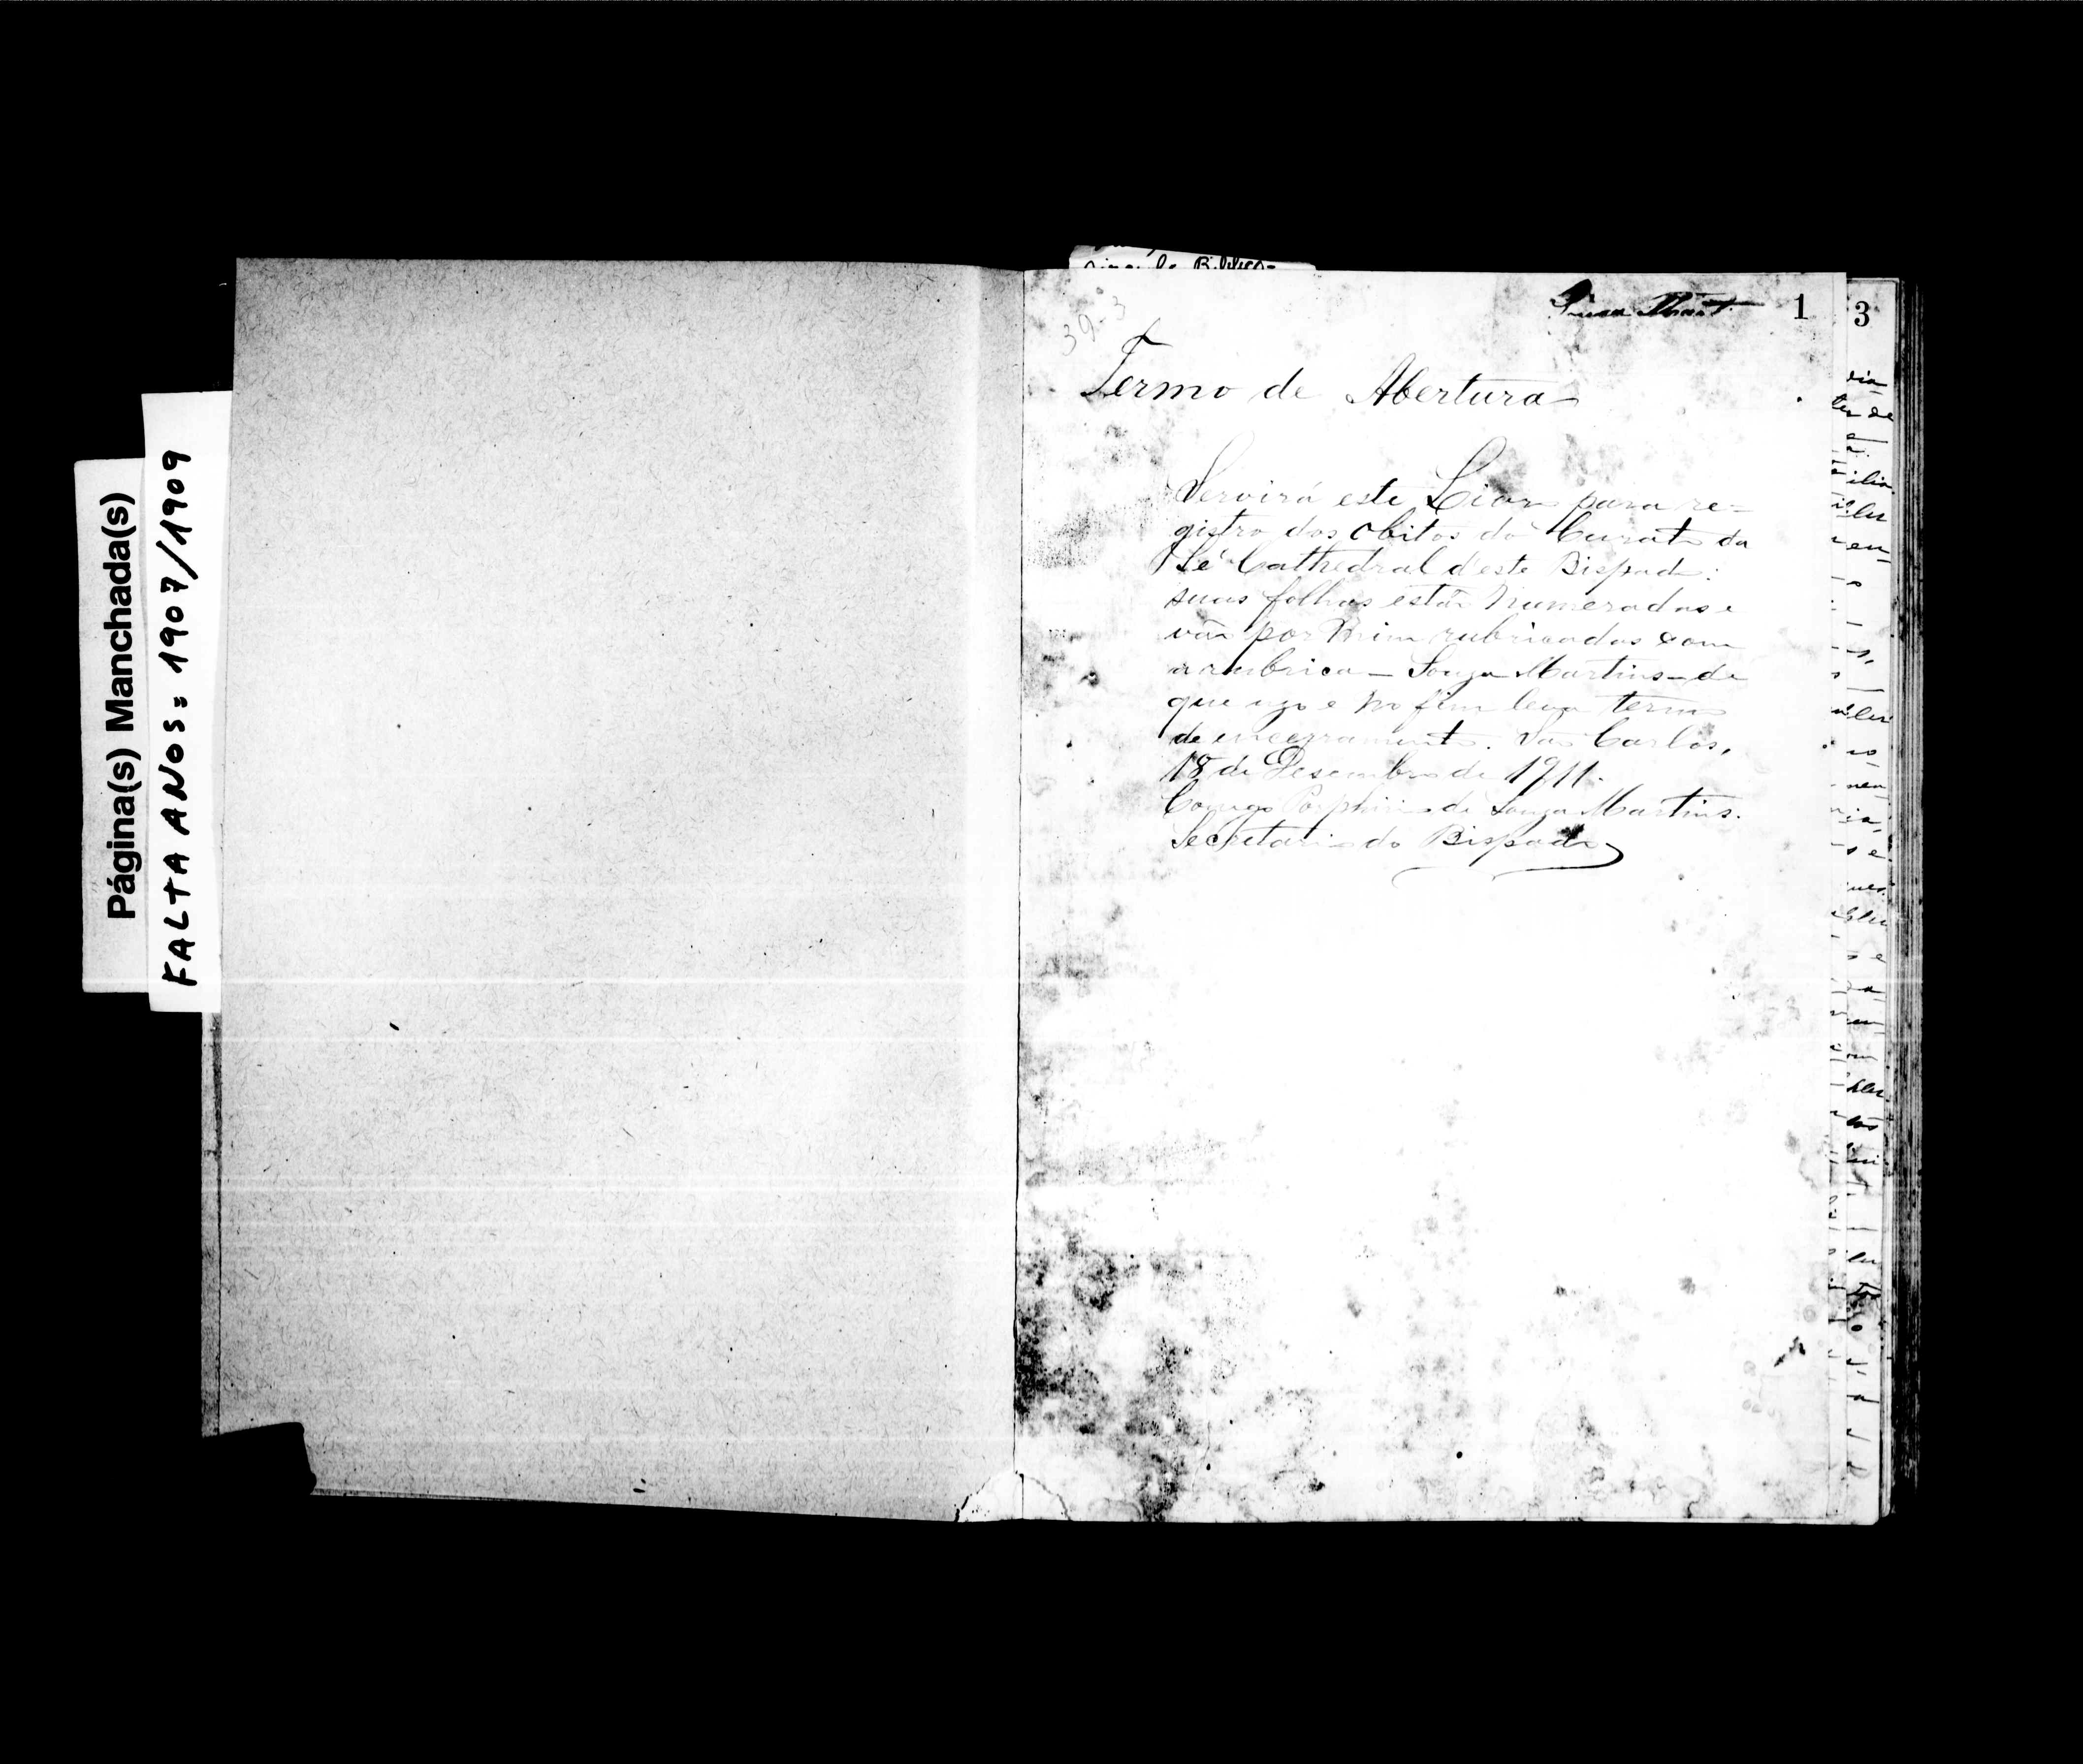 Página(s) Manchada(s)
FALTA ANOS = 1907/1909
39-3
Souza Mart.
1
3
Termo de Abertura
Servirá este Livro para re-
gistro dos obitos do Curato da
Sé Cathedral d'este Bispado:
suas folhas estão numeradas e
vão por mim rubricadas com
a rubrica — Souza Martins — de
que uzo e no fim leva termo
de encerramento. São Carlos,
18 de Desembro de 1911.
Conego Porphirio de Souza Martins.
Secretario do Bispado